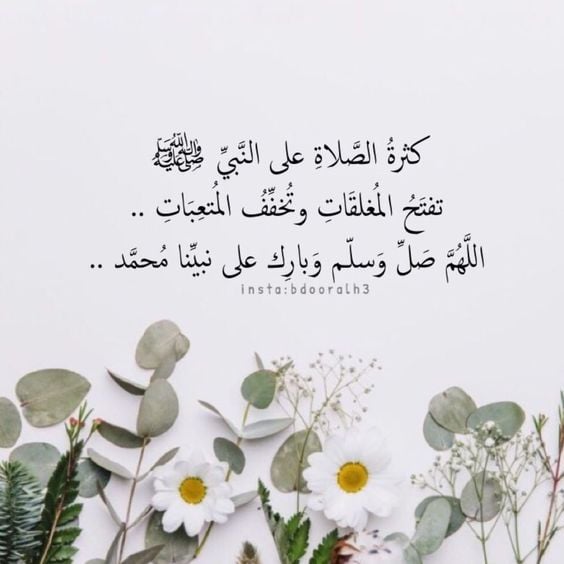 كثرةُ الصَّلاةِ على النَّبيِّ ﷺ
تفتَحُ المُغلقَاتِ وتُخفِّفُ المُتعِبَاتِ ..
اللَّهُمَّ صَلِّ وَسلّم وَبارِك على نبيِّنا مُحمَّد ..
insta:bdooralh3